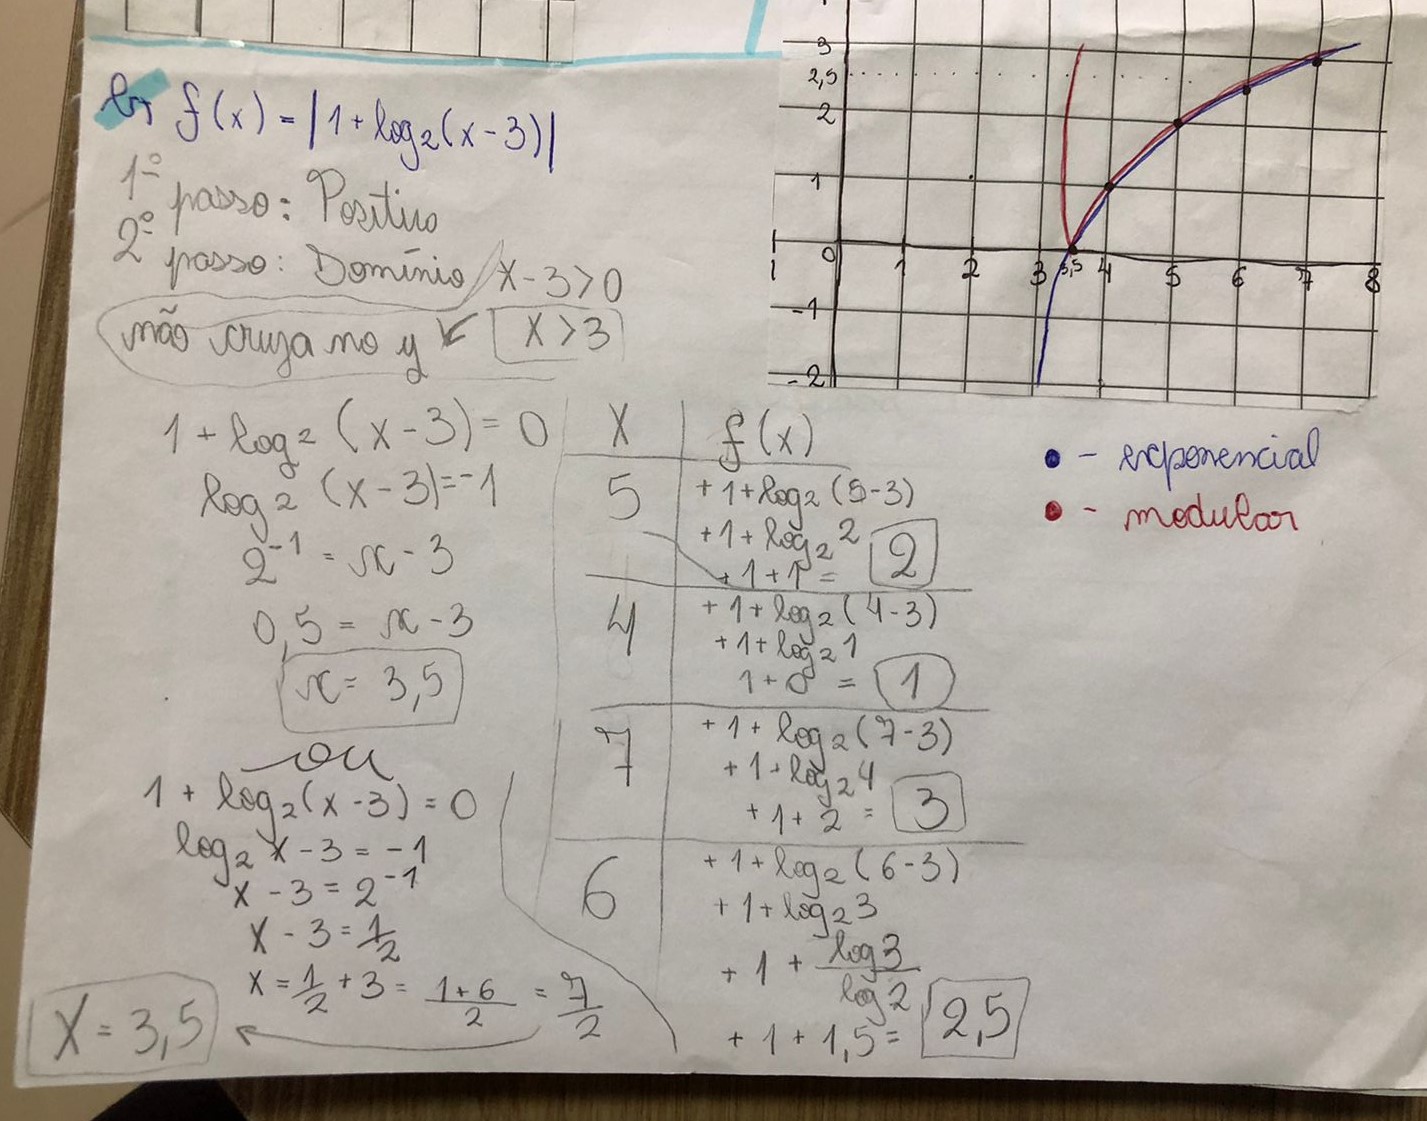 b) f(x) = |1+log₂(x-3)|
1º passo: Positivo
2º passo: Domínio x-3>0
não cruza no y x>3
1 + log₂ (x-3) = 0
log₂ (x-3) = -1
2⁻¹ = x - 3
0,5 = x - 3
x = 3,5
ou
1 + log₂(x-3) = 0
log₂ x - 3 = -1
x - 3 = 2⁻¹
x - 3 = 1/2
x = 1/2 + 3 = (1+6)/2 = 7/2
x = 3,5
x f(x)
5 +1+log₂(5-3)
+1+log₂2
+1+1 = 2
4 +1+log₂(4-3)
+1+log₂1
1+0 = 1
7 +1+log₂(7-3)
+1+log₂4
+1+2 = 3
6 +1+log₂(6-3)
+1+log₂3
+1 + log3/log2
+1+1,5 = 2,5
3
2,5
2
1
0 1 2 3 3,5 4 5 6 7 8
-1
-2
• - exponencial
• - modular